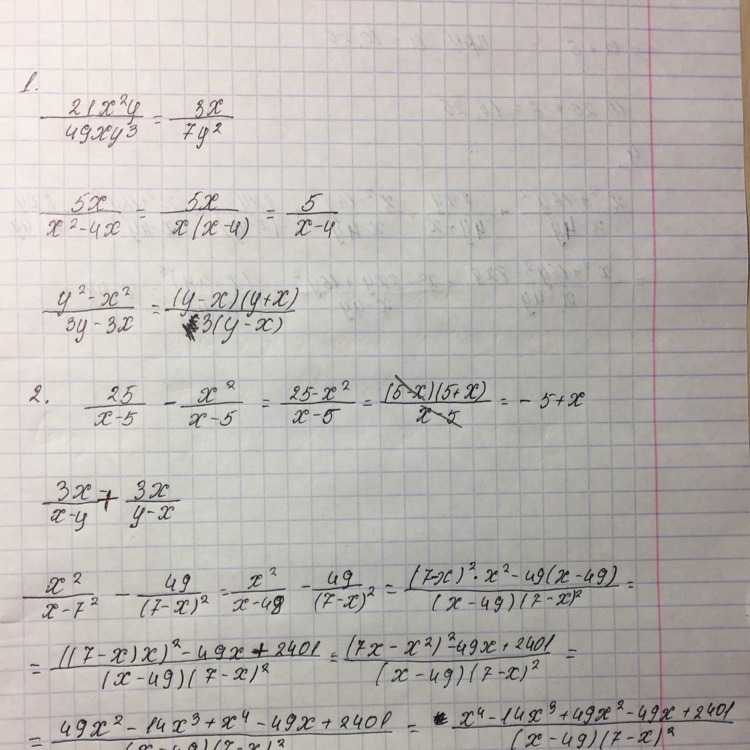 1.
21x²y/49xy³ = 3x/7y²
5x/x²-4x = 5x/x(x-4) = 5/x-4
y²-x²/3y-3x = (y-x)(y+x)/3(y-x)
2. 25/x-5 - x²/x-5 = 25-x²/x-5 = (5-x)(5+x)/x-5 = -5+x
3x/x-y + 3x/y-x
x²/x-7² - 49/(7-x)² = x²/x-49 - 49/(7-x)² = (7-x)²·x²-49(x-49)/(x-49)(7-x)² =
= ((7-x)x)²-49x+2401/(x-49)(7-x)² = (7x-x²)²-49x+2401/(x-49)(7-x)² =
= 49x²-14x³+x⁴-49x+2401/(x-49)(7-x)² = x⁴-14x³+49x²-49x+2401/(x-49)(7-x)²